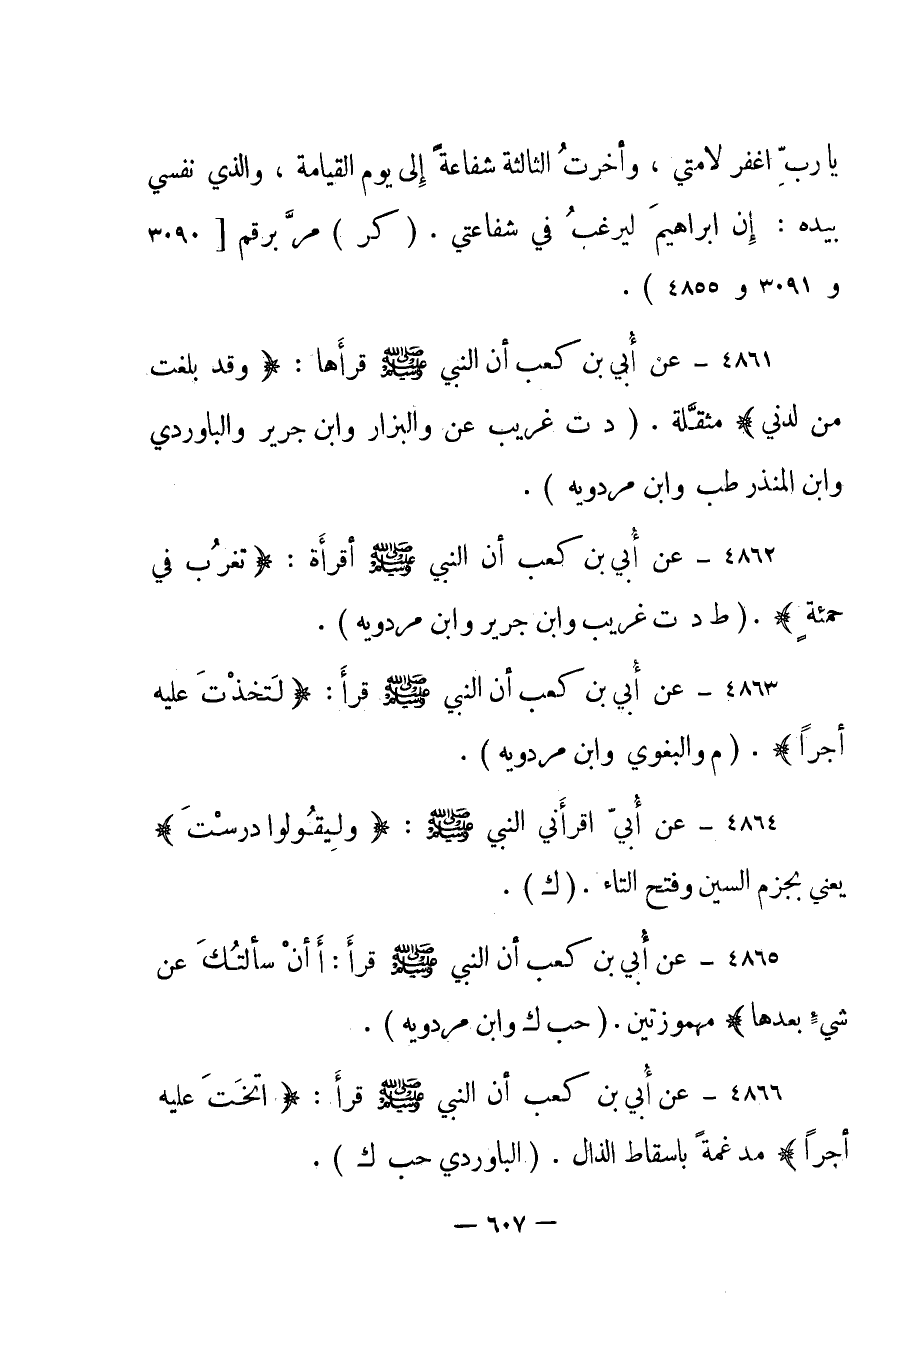 يا ربِّ اغفر لامتي ، وأخرتُ الثالثة شفاعةً إلى يوم القيامة ، والذي نفسي
بيده : إن ابراهيمَ ليرغبُ في شفاعتي . ( كر ) مرَّ برقم [ ٣٠٩٠
و ٣٠٩١ و ٤٨٥٥ ) .
٤٨٦١ – عن أُبي بن كعب أن النبي ﷺ قرأَها : ﴿ وقد بلغت
من لدني ﴾ مثقَّلة . ( د ت غريب عن والبزار وابن جرير والباوردي
وابن المنذر طب وابن مردويه ) .
٤٨٦٢ – عن أُبي بن كعب أن النبي ﷺ أقرأَة : ﴿ تغرُب في
حمئةٍ ﴾ . ( ط د ت غريب وابن جرير وابن مردويه ) .
٤٨٦٣ – عن أُبي بن كعب أن النبي ﷺ قرأَ : ﴿ لَتَخذْتَ عليه
أجراً ﴾ . ( م والبغوي وابن مردويه ) .
٤٨٦٤ – عن أُبيّ اقرأَني النبي ﷺ : ﴿ ولِيقُولوا درسْتَ ﴾
يعني بجزم السين وفتح التاء . ( ك ) .
٤٨٦٥ – عن أُبي بن كعب أن النبي ﷺ قرأَ : أَ أنْ سألتُكَ عن
شيءٍ بعدها ﴾ مهموزتين . ( حب ك وابن مردويه ) .
٤٨٦٦ – عن أُبي بن كعب أن النبي ﷺ قرأَ : ﴿ اتخَتَ عليه
أجراً ﴾ مدغمةً باسقاط الذال . ( الباوردي حب ك ) .
— ٦٠٧ —